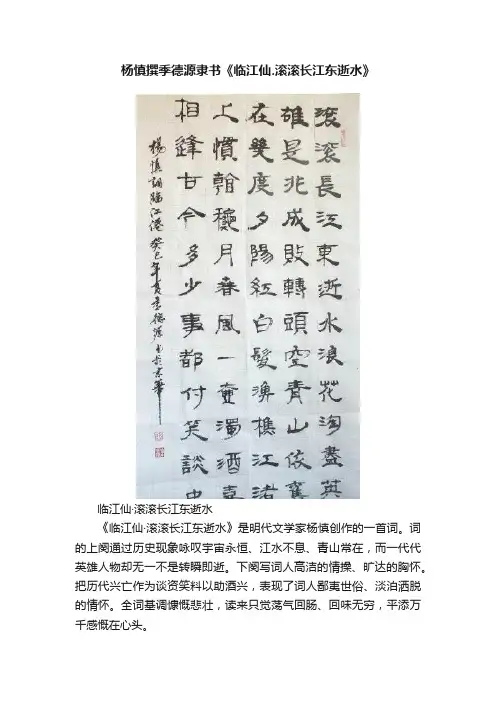 杨慎撰季德源隶书《临江仙.滚滚长江东逝水》
滚滚長江東逝水浪花淘盡英
雄是非成敗轉頭空青山依舊
在幾度夕陽紅白髮漁樵江渚
上慣看龝月春風一壺濁酒喜
相逢古今多少事都付笑談中
楊慎詞臨江僊癸巳年夏季德源書於京華
临江仙·滚滚长江东逝水
《临江仙·滚滚长江东逝水》是明代文学家杨慎创作的一首词。词
的上阕通过历史现象咏叹宇宙永恒、江水不息、青山常在，而一代代
英雄人物却无一不是转瞬即逝。下阕写词人高洁的情操、旷达的胸怀。
把历代兴亡作为谈资笑料以助酒兴，表现了词人鄙夷世俗、淡泊洒脱
的情怀。全词基调慷慨悲壮，读来只觉荡气回肠、回味无穷，平添万
千感慨在心头。